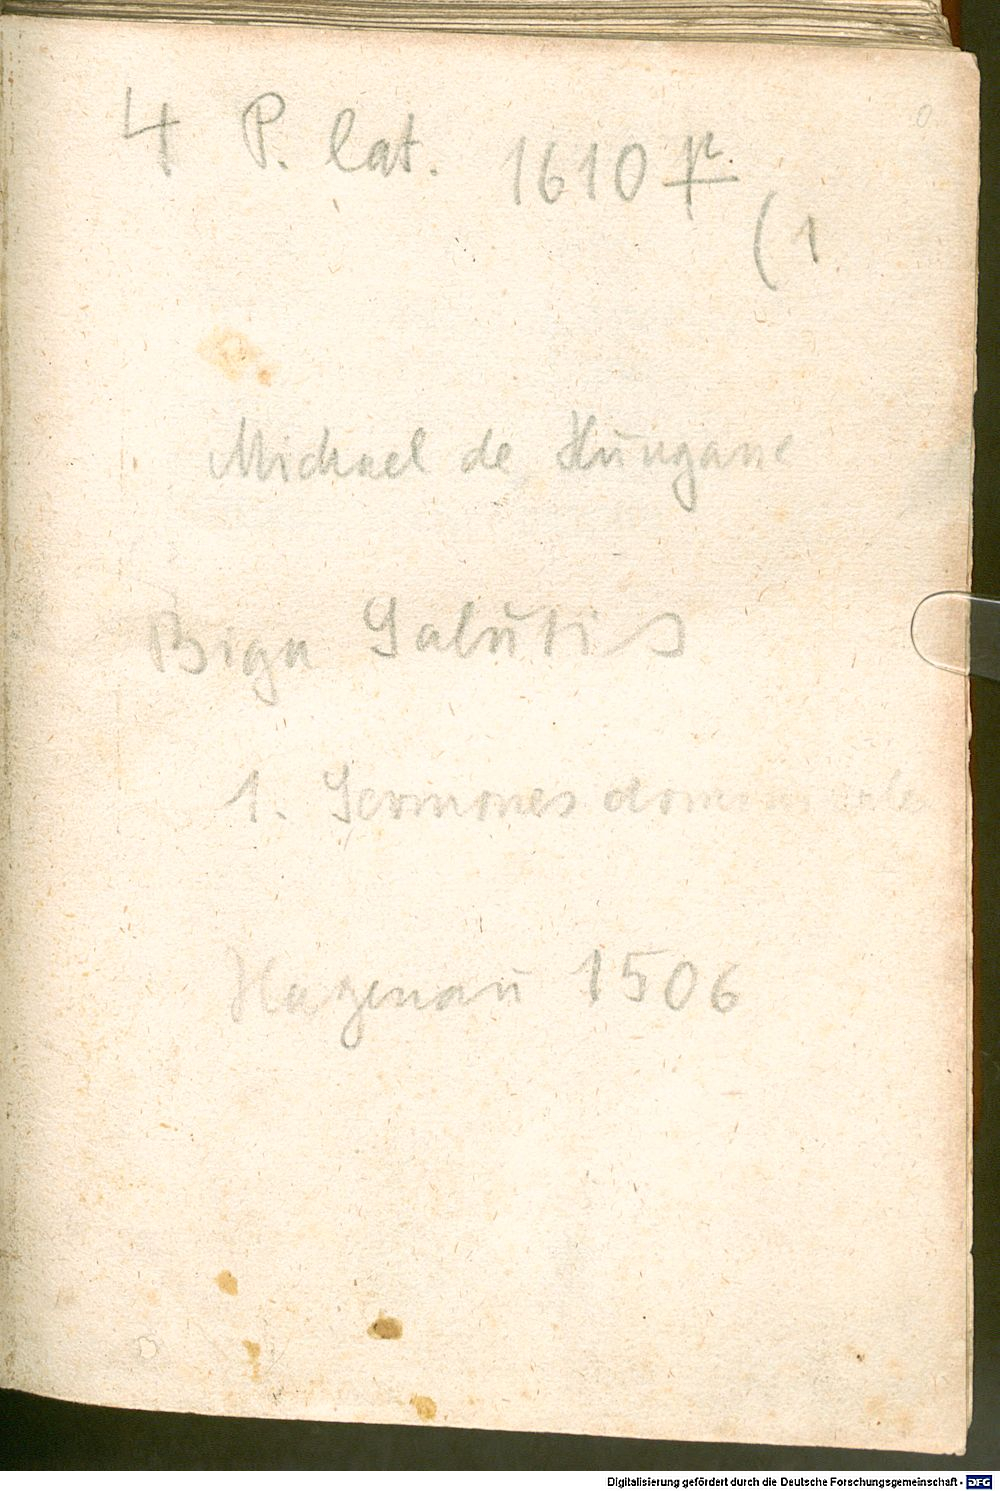 4 P. lat. 1610 r
(1
Michael de Hungaria
Biga Salutis
1. Sermones dominicales
Hagenau 1506
Digitalisierung gefördert durch die Deutsche Forschungsgemeinschaft - DFG